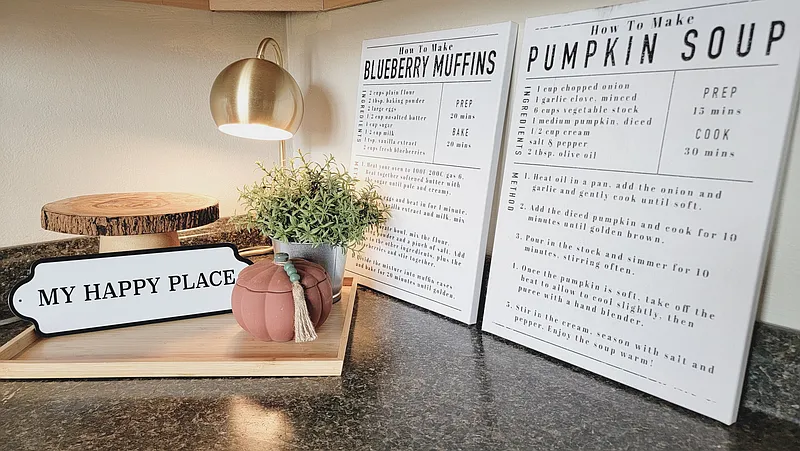 MY HAPPY PLACE
How To Make
BLUEBERRY MUFFINS
INGREDIENTS
2 cups plain flour
2 tbsp. baking powder
2 large eggs
1/2 cup unsalted butter
1 cup sugar
1/2 cup milk
1 tsp. vanilla extract
2 cups fresh blueberries
PREP
20 mins
BAKE
20 mins
Heat your oven to
gas 6.
Beat together softened butter with
sugar until pale and creamy.
and beat in for 1 minute.
vanilla extract and milk, mix
bowl, mix the flour,
and a pinch of salt. Add
other ingredients, plus the
and stir together.
the mixture into muffin cases
and bake for 20 minutes until golden.
How To Make
PUMPKIN SOUP
INGREDIENTS
1 cup chopped onion
1 garlic clove, minced
6 cups vegetable stock
1 medium pumpkin, diced
1/2 cup cream
salt & pepper
2 tbsp. olive oil
PREP
15 mins
COOK
30 mins
METHOD
1. Heat oil in a pan, add the onion and
garlic and gently cook until soft.
2. Add the diced pumpkin and cook for 10
minutes until golden brown.
3. Pour in the stock and simmer for 10
minutes, stirring often.
4. Once the pumpkin is soft, take off the
heat to allow to cool slightly, then
puree with a hand blender.
5. Stir in the cream, season with salt and
pepper. Enjoy the soup warm!